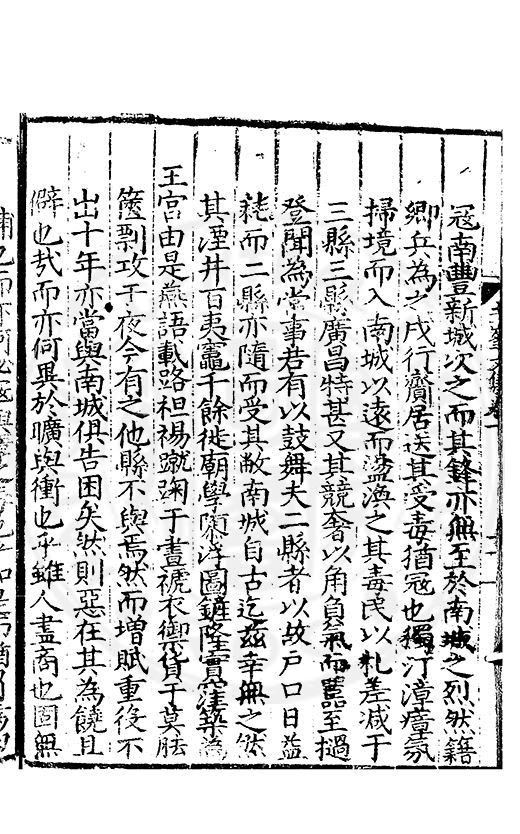 寇南豐新城次之而其鋒亦無至於南城之烈然籍
鄉兵為之戍行齎居送其受毒猶寇也獨汀漳瘴氛
掃境而入南城以遠而盜渙之其毒民以札差減于
三縣三縣廣昌特甚又其競奢以角負氣而嚚至撾
登聞為常事若有以鼓舞夫二縣者以故戶口日益
耗而二縣亦隨而受其敝南城自古迄茲幸無之然
其湮井百夷竈千餘徙廟學隳洋圖雖隆實窪築為
王宮由是燕語載路袒裼蹴踘于晝褫衣禦貨于莫胠
篋剽攻于夜今有之他縣不與焉然而增賦重役不
出十年亦當與南城俱告困矣然則惡在其為饒且
僻也㢤而亦何異於曠與衝也乎雖人盡商也固無